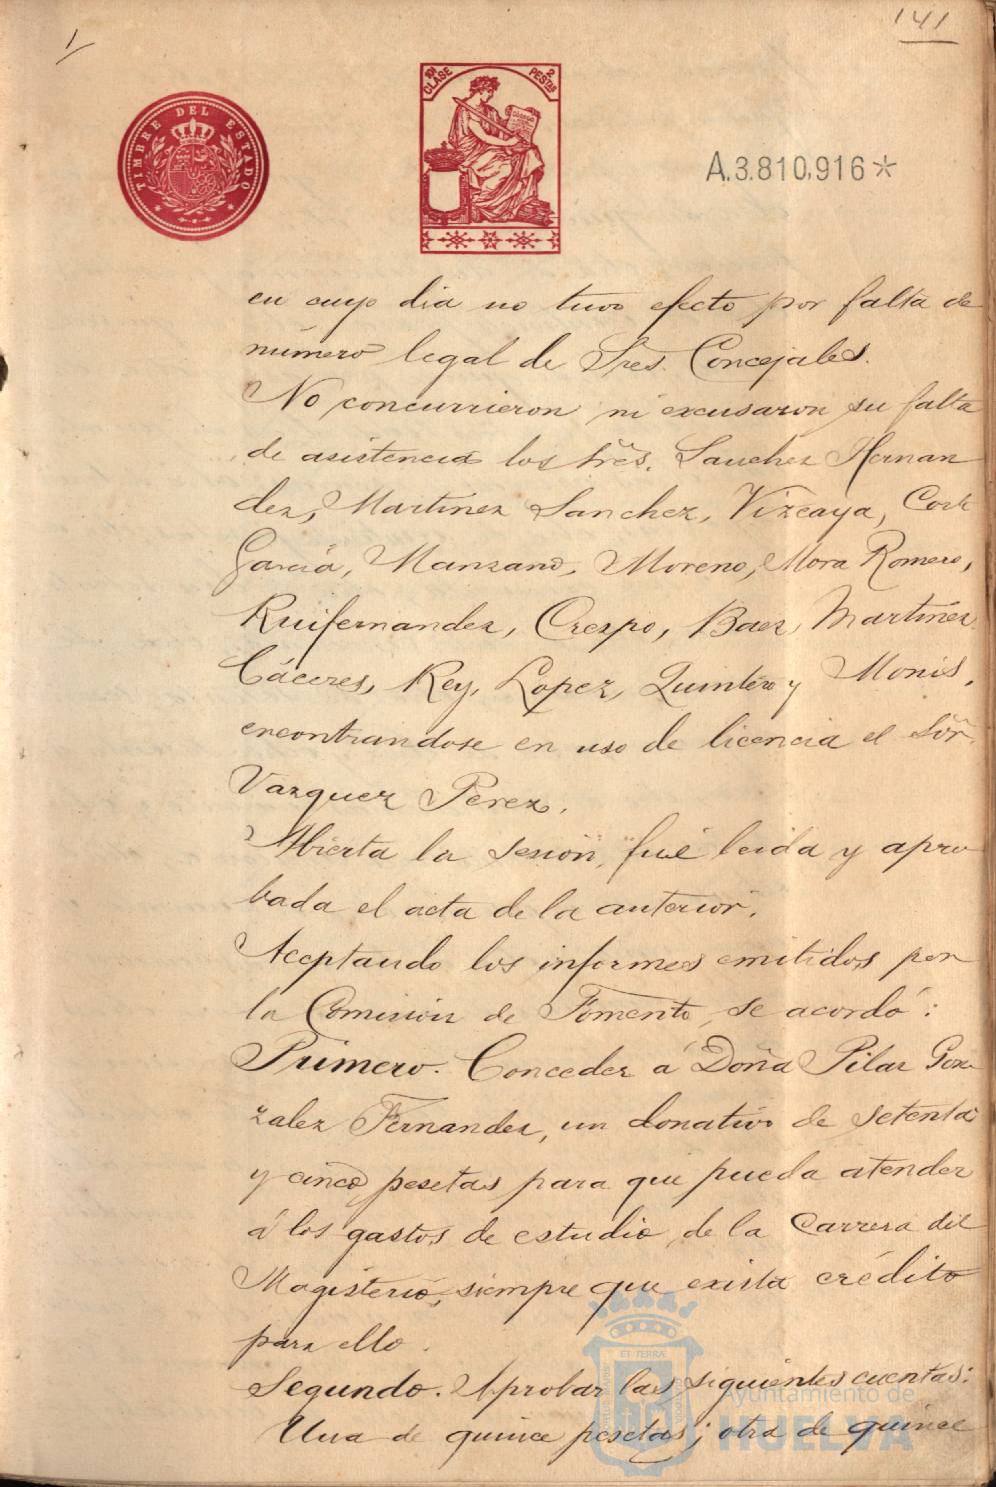 1
141
TIMBRE DEL ESTADO
11ª CLASE
2 PESTAS
A.3.810,916*
en cuyo dia no tuvo efecto por falta de
número legal de Sres. Concejales.
No concurrieron ni excusaron su falta
de asistencia los Sres. Sanchez Hernan
dez, Martinez Sanchez, Vizcaya, Cort
Garcia, Manzano, Moreno, Mora Romero,
Ruifernandez, Crespo, Baez, Martinez
Cáceres, Rey, Lopez, Quintero y Monis,
encontrandose en uso de licencia el Sór.
Vazquez Perez.
Abierta la sesión, fué leida y apro
bada el acta de la anterior.
Aceptando los informes emitidos por
la Comisión de Fomento, se acordó:
Primero. Conceder á Doña Pilar Gon
zalez Fernandez, un donativo de setenta
y cinco pesetas para que pueda atender
á los gastos de estudio de la Carrera del
Magisterio, siempre que exista crédito
para ello.
Segundo. Aprobar las siguientes cuentas:
Una de quince pesetas; otra de quince
Ayuntamiento de
HUELVA